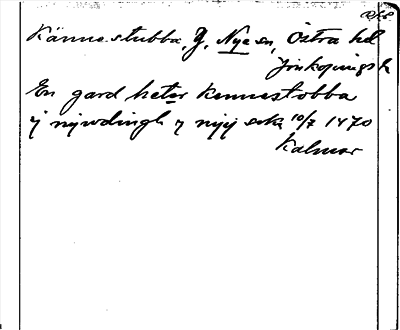 Kännestubba, g, Nye sn, Östra hd
Jönköpings l
En gard heter kennestobba
ij nywdingh
10/7 1470
Kalmar